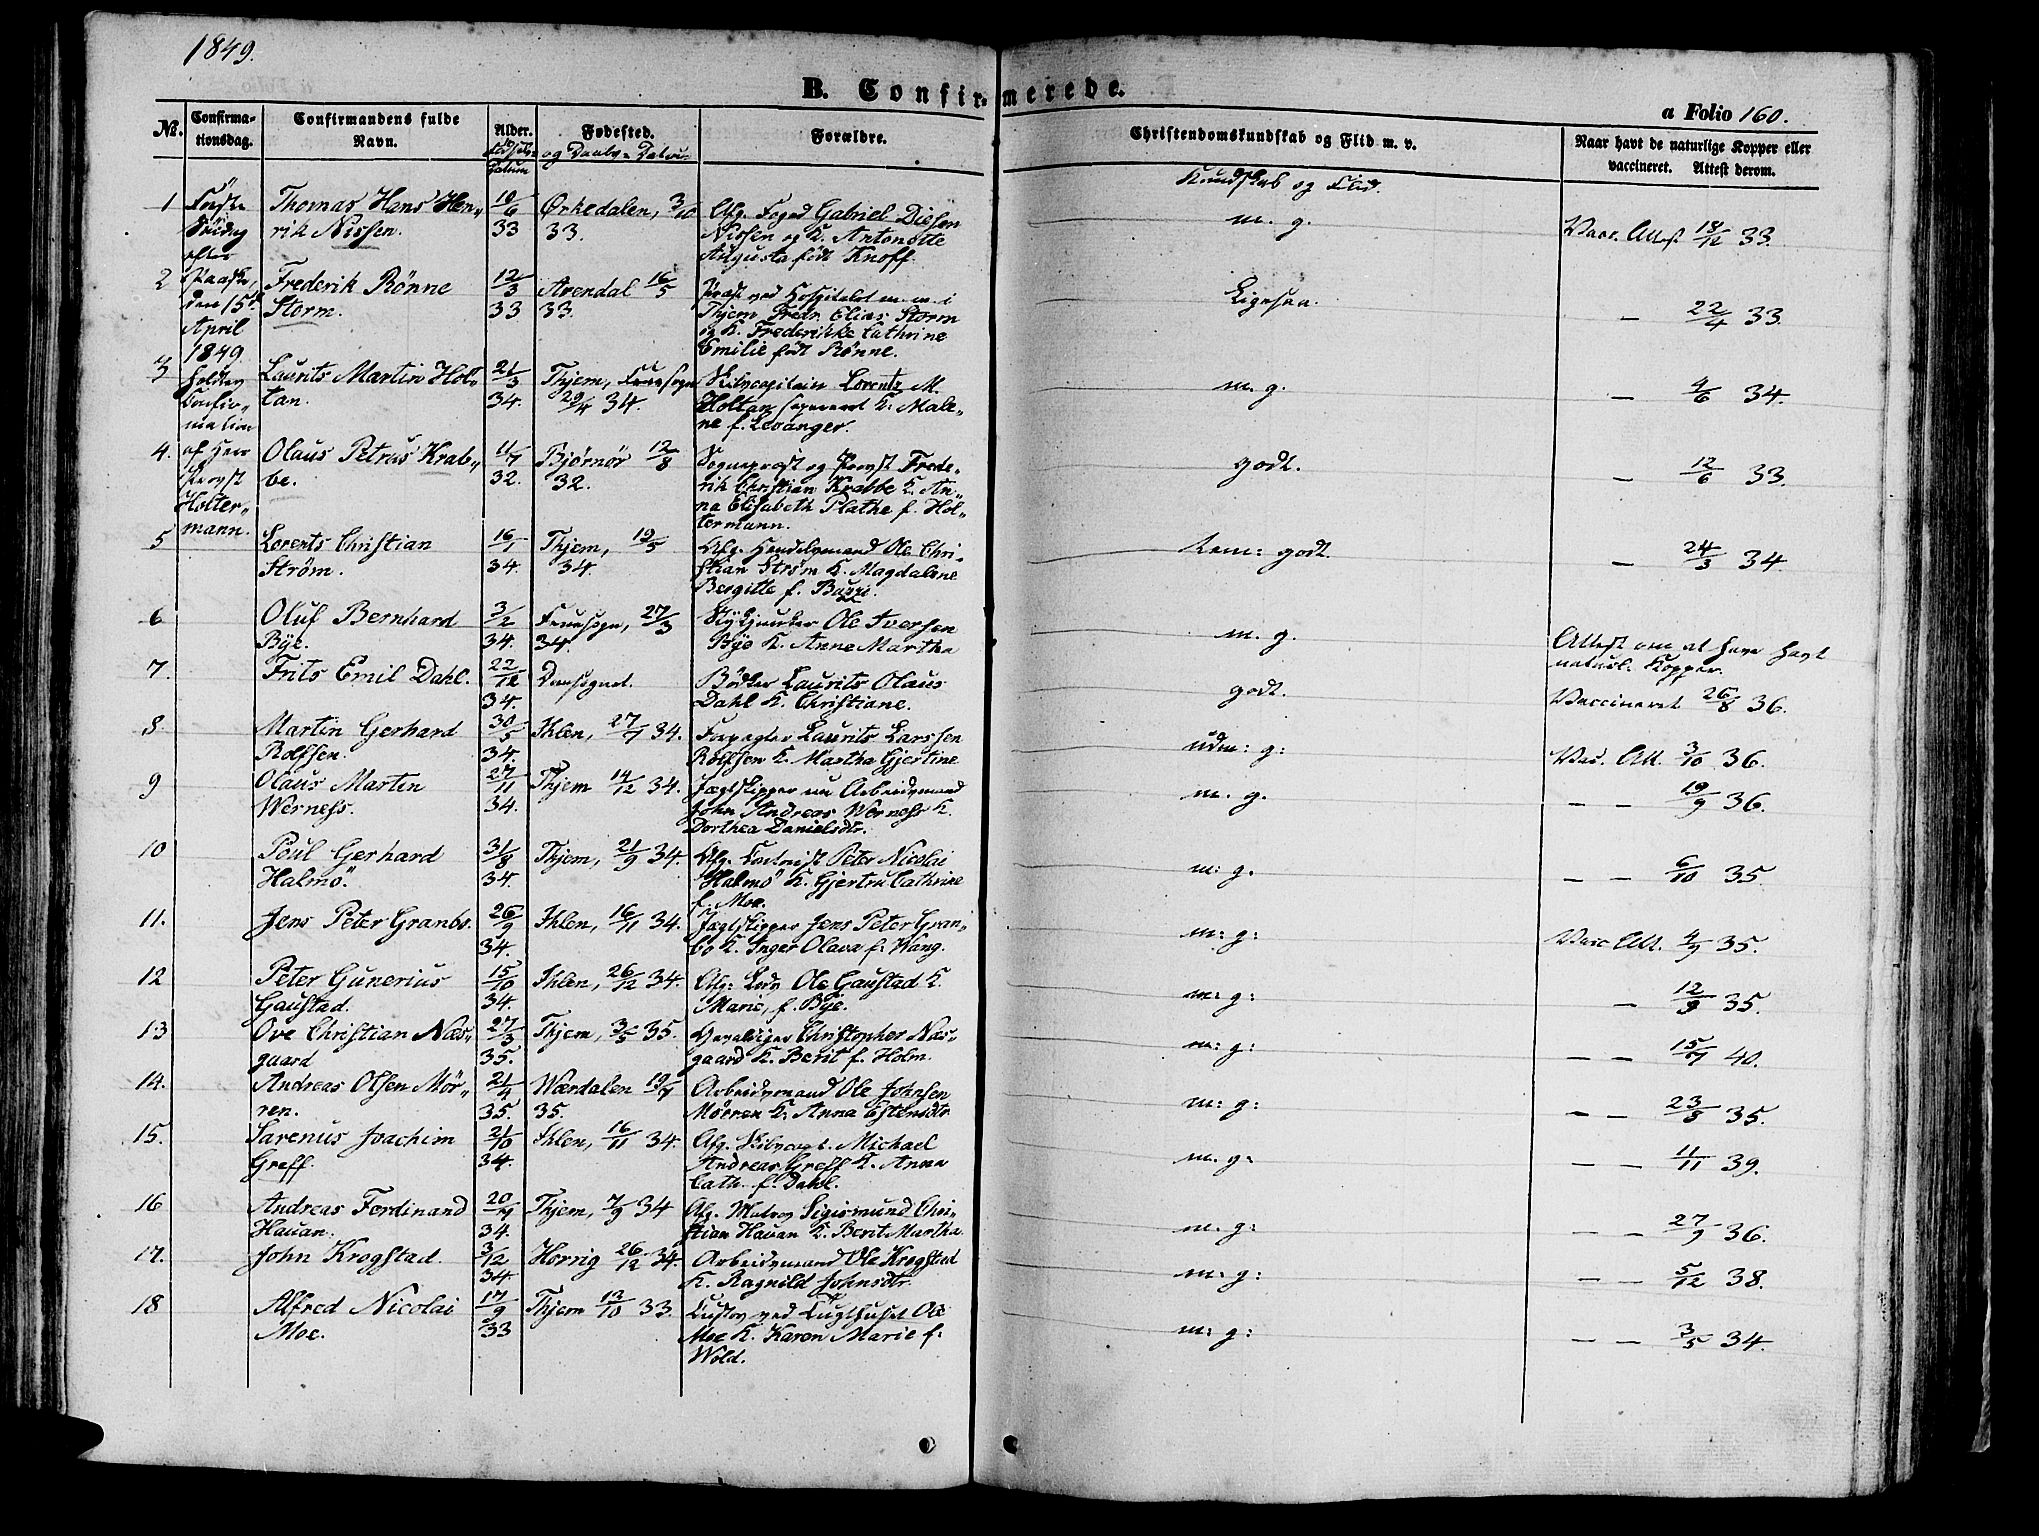 1849.
B. Confir- merede.
a Folio 160.
No. Confirma-tionsdag. Confirmandens fulde Navn. Alder. Fødsels Datum Fødested. og Daabs-Datum Forældre. Christendomskundskab og Flid m. v. Naar havt de naturlige Kopper eller vaccineret. Attest derom.
Kundskab og Flid.
Første Søndag efter Paaske, den 15de April 1849 holdtes Confirmation af Herr Provst Holtermann.
1 Thomas Hans Hen- 10/6 Ørkedalen, 3/10 Afg. Foged Gabriel Diesen m. g. Vacc. Attest 18/12 33.
rik Nissen. 33 33. Nissen og K. Antonette
Augusta født Knoff.
2 Frederik Rønne 12/3 Arendal 16/5 Præst ved Hospitalet m. m. i Ligesaa. — 22/4 33.
Storm. 33 33. Thjem Fredr. Elias Storm
og K. Frederikke Cathrine
Emilie født Rønne.
3 Laurits Martin Hol- 21/3 Thjem, Fruesogn Skibscapitain Lorentz M. m. g. — 4/6 34.
tan. 34. 29/4 34. Holtan K. Male-
ne f. Levanger.
4. Olaus Petrus Krab- 11/7 Bjørnør 12/8 Sognepræst og Provst Frede- godt. — 12/6 33.
be. 32. 32. rik Christian Krabbe K. An-
na Elisabeth Plathe f. Hol-
termann.
5 Lorents Christian 16/1 Thjem, 19/5 Afg. Handelsmand Ole Chri- Tem: godt. — 24/3 34.
Strøm. 34. 34. stian Strøm K. Magdalene
Bergitte f.
6 Oluf Bernhard 3/2 Fruesogn, 27/3 Ole Iversen m. g. Attest om at have havt
Bye. 34. 34. Bye K. Anne Martha naturl. Kopper.
7. Frits Emil Dahl. 22/12 Domsognet. Bødker Laurits Olaus godt. Vaccineret 26/8 36.
34. Dahl K. Christiane.
8. Martin Gerhard 30/5 Ihlen, 27/7 34. Forpagter Laurits Larssen udm: g: Vac. Att. 3/10 36.
Rolfsen. 34. Rolfsen K. Martha Gjertine
9 Olaus Martin 27/11 Thjem 14/12 34. Jægtskipper nu Arbeidsmand m. g. — — 19/9 36.
Werness. 34. John Andreas Werness K.
Dorthea Danielsdtr.
10 Poul Gerhard 31/8 Thjem, 21/9 34. Afg. Peter Nicolai m: g. — — 6/10 35.
Halmø. 34. Halmø K. Gjertru Cathrine
f. Moe.
11. Jens Peter Granbo. 26/9 Ihlen, 16/11 34. Jægtskipper Jens Peter Gran- m: g: Vacc Att. 4/9 35.
34. bo K. Inger Olava f: Wang.
12 Peter Gunerius 15/10 Ihlen, 26/12 34. Afg: Lods Ole Gaustad K. m: g: — 12/9 35.
Gaustad. 34. Marie, f. Bye.
13 Ove Christian Næs- 27/3 Thjem, 3/5 35. Christopher Næs- m: g: — — 15/7 40.
gaard 35. gaard K. Berit f. Holm.
14. Andreas Olsen Mør- 21/4 Wærdalen 19/7 Arbeidsmand Ole Johnsen m: g: — — 23/5 35.
ren. 35. 35. Mørren K. Anna Estensdtr.
15. Sarenus Joachim 21/10 Ihlen, 16/11 34. Afg. Skibscapt. Michael m. g: — — 11/11 39.
Greff. 34. Andreas Greff K. Anna
Cath. f. Dahl.
16 Andreas Ferdinand 20/7 Thjem, 7/9 34 Afg. Matros Sigismund Chri- m. g: — — 27/9 36.
Hauan. 34. stian Hauan K. Berit Martha
17. John Krogstad. 3/12 Horrig 26/12 34. Arbeidsmand Ole Krogstad m: g: — — 5/12 38.
34 K. Ragnild Johnsdtr.
18 Alfred Nicolai 17/9 Thjem 13/10 33. Custos ved Tugthuset Ole m: g: — — 3/5 34.
Moe. 33 Moe K. Karen Marie f:
Wold.